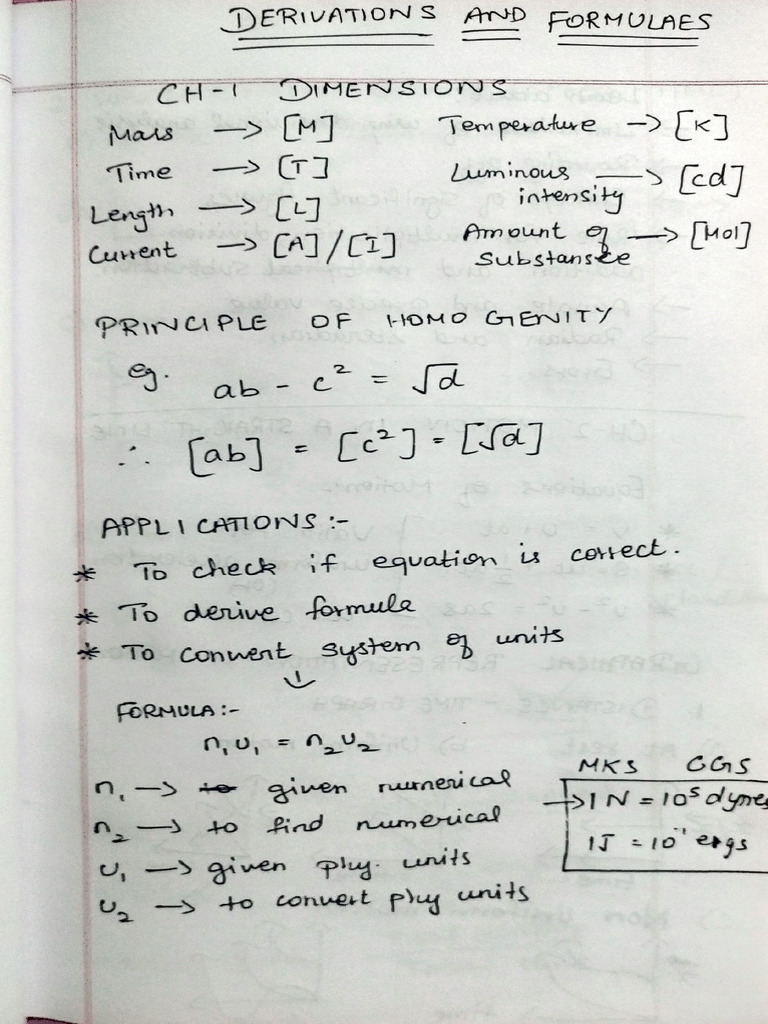 DERIVATIONS AND FORMULAES
CH-1 DIMENSIONS
Mass → [M]
Time → [T]
Length → [L]
Current → [A]/[I]
Temperature → [K]
Luminous intensity → [cd]
Amount of Substansce → [Mol]
PRINCIPLE OF HOMOGENITY
eg. ab - c² = √d
∴ [ab] = [c²] = [√d]
APPLICATIONS :-
* To check if equation is correct.
* To derive formula
* To convert system of units
↓
FORMULA :-
n₁u₁ = n₂u₂
n₁ → given numerical
n₂ → to find numerical
u₁ → given phy. units
u₂ → to convert phy units
MKS CGS
→ 1N = 10⁵ dynes
1J = 10⁻¹ ergs